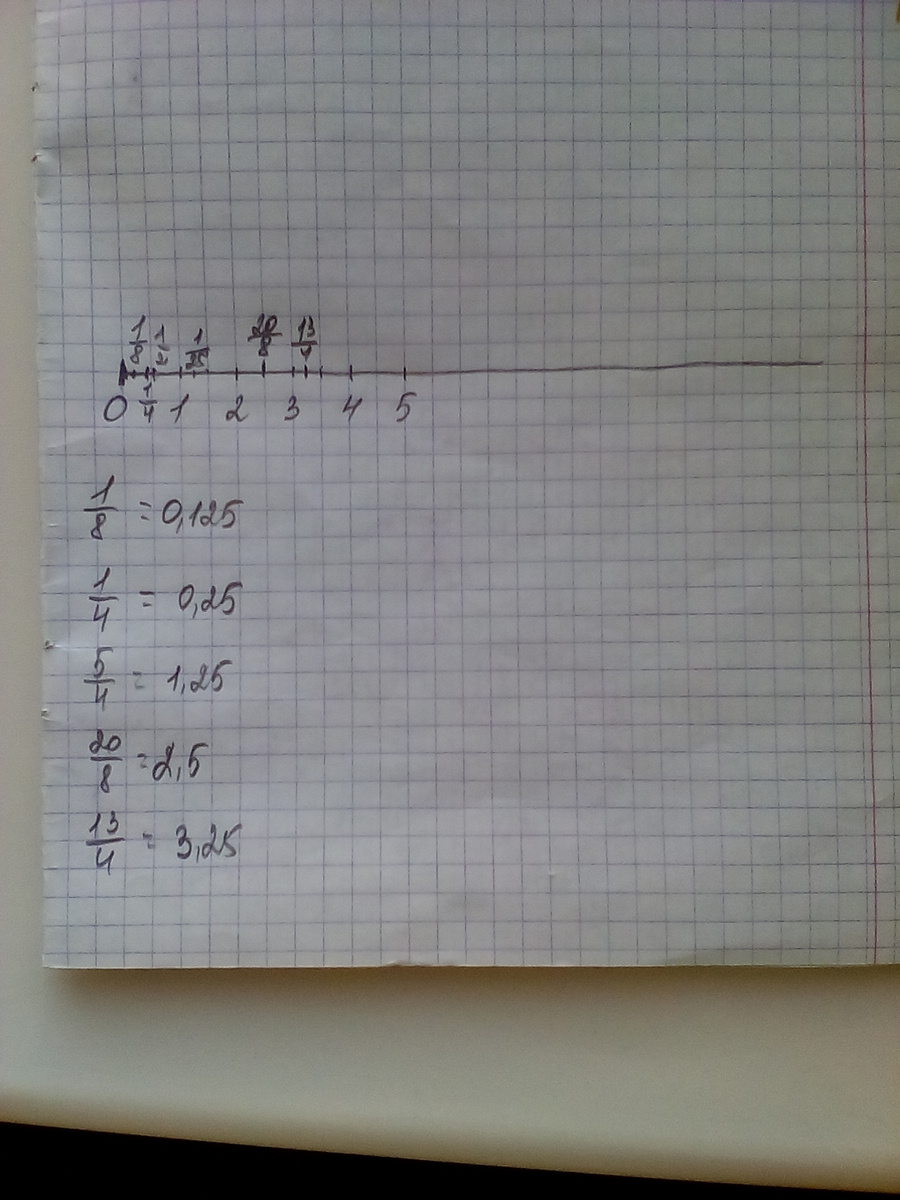 1/8 1/2 1/25 20/8 13/4
0 1/4 1 2 3 4 5
1/8 = 0,125
1/4 = 0,25
5/4 = 1,25
20/8 = 2,5
13/4 = 3,25